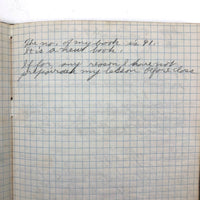 The no. of my book is 91.
It is a new book.
If for any reason I have not
prepared my lesson before class